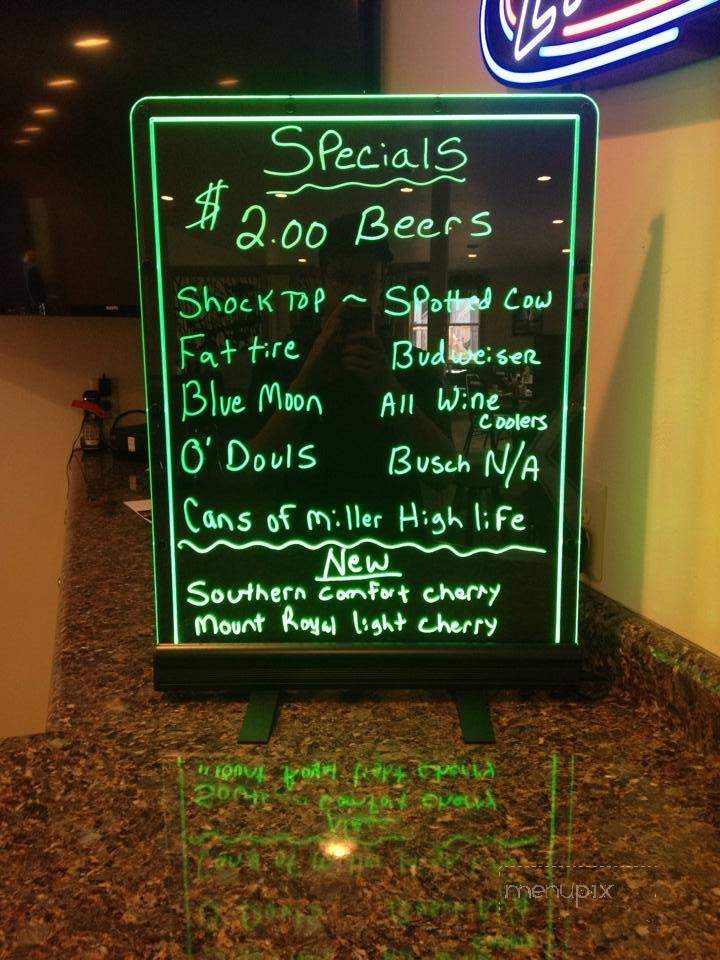 Specials
$2.00 Beers
Shock Top ~ Spotted Cow
Fat tire Budweiser
Blue Moon All Wine Coolers
O'Douls Busch N/A
Cans of Miller High life
New
Southern Comfort cherry
Mount Royal light cherry
menupix